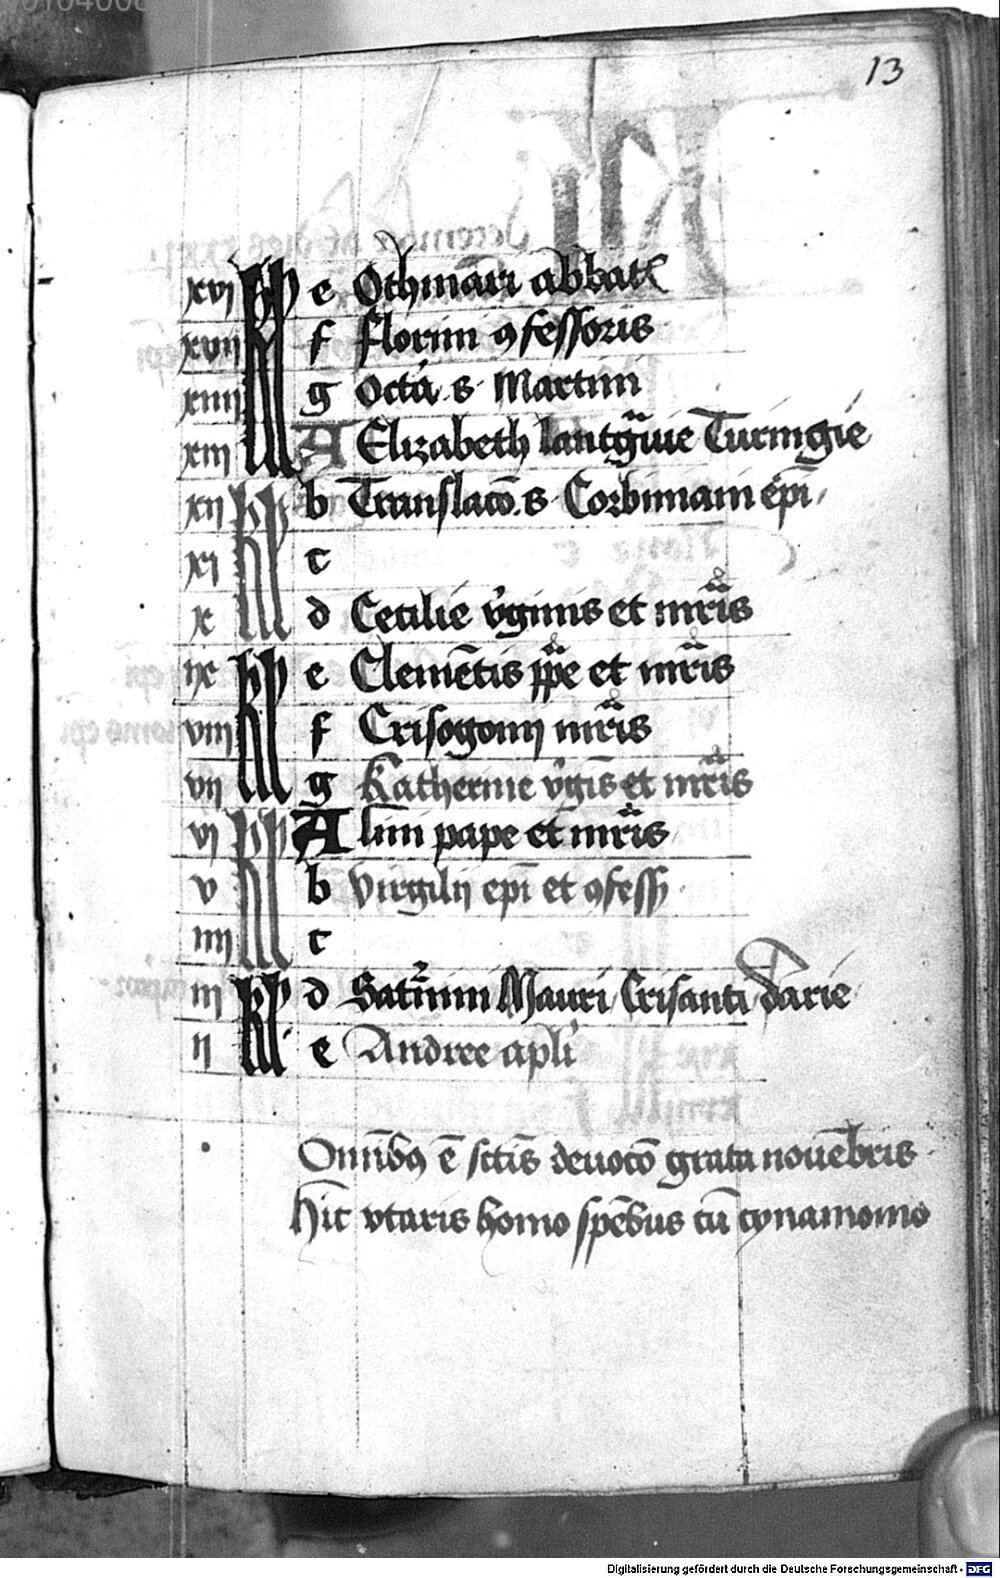 13
xvi kl e Othmari abbatꝭ
xvii f florini ꝯfessoris
xiiii g Octa s. Martini
xiii A Elizabeth lantg̃uie Turingie
xii kl b Translacō. s. Corbiniani ep̄i
xi c
x d Cecilie v̓ginis et mr̃is
ix kl e Clemētis pp̃e et mr̃is
viii f Crisogonij mr̃is
vii g Katherine v̓gīs et mr̃is
vi kl A lini pape et mr̃is
v b Virgilij ep̄i et ꝯfess
iiii c
iii kl d Sat̓nini Mauri Crisanti darie
ii e Andree apl̓i
Omībꝰ ē sctīs deuocō grata nouēbris
Hīc vtaris homo spēbus cū cynamomo
Digitalisierung gefördert durch die Deutsche Forschungsgemeinschaft - DFG